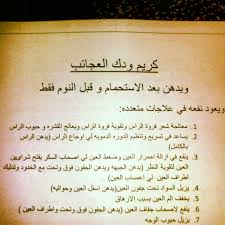 كريم ودك العجائب
ويدهن بعد الاستحمام و قبل النوم فقط
ويعود نفعه في علاجات متعدده:
1. معالجة شعر فروة الراس وتقوية فروة الراس ويعالج القشره و حبوب الراس
2. يساعد في تسريع وتنظيم الدوره الدمويه لي اوجاع الراس (يدهن الراس
بالكامل)
3. ينفع في ازالة احمرار العين وضغط العين لي اصحاب السكر يفتح شرايين
العين لتقوية النظر (يدهن الجفون فوق وتحت مع الخدود وتدليك
اطراف العين) لي اعصاب العين
4. يزيل السواد تحت جفون العين(يدهن اسفل العين وحواليه)
5. يخفف الم العين بسبب الارهاق
6. ينفع لاصحاب جفاف العين (يدهن الجفون فوق وتحت واطراف العين)
7. يزيل حبوب الوجه